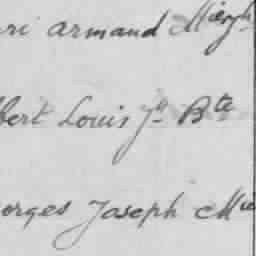 ri Armand Miegh
bert Louis Jn Bte
orges Joseph Mie